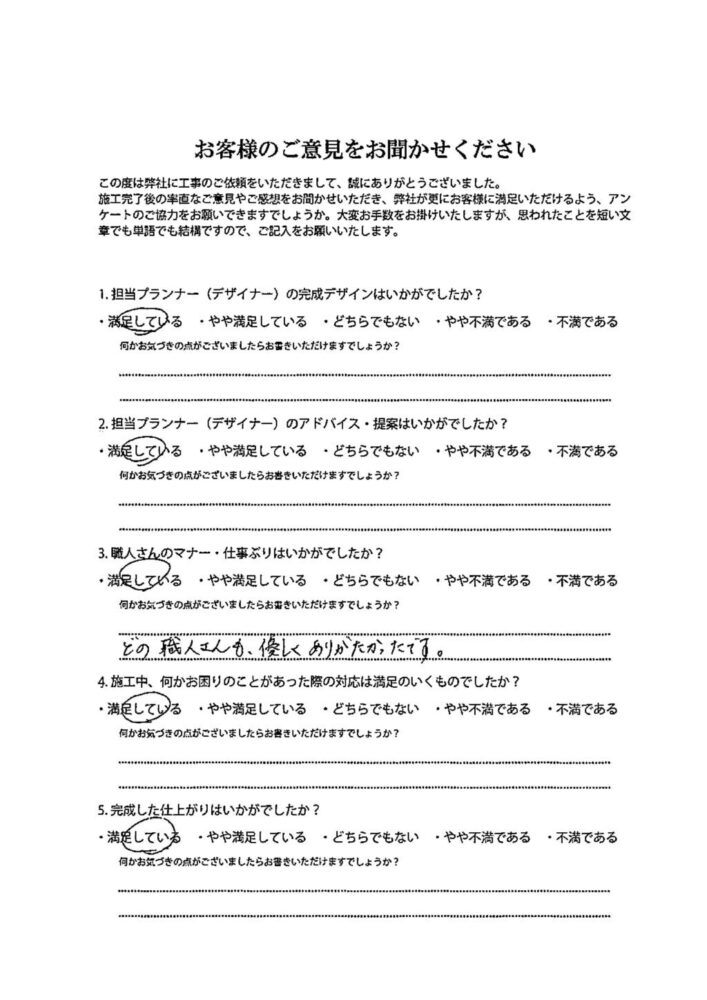 お客様のご意見をお聞かせください
この度は弊社に工事のご依頼をいただきまして、誠にありがとうございました。
施工完了後の率直なご意見やご感想をお聞かせいただき、弊社が更にお客様に満足いただけるよう、アン
ケートのご協力をお願いできますでしょうか。大変お手数をお掛けいたしますが、思われたことを短い文
章でも単語でも結構ですので、ご記入をお願いいたします。
1. 担当プランナー（デザイナー）の完成デザインはいかがでしたか？
・満足している ・やや満足している ・どちらでもない ・やや不満である ・不満である
何かお気づきの点がございましたらお書きいただけますでしょうか？
2. 担当プランナー（デザイナー）のアドバイス・提案はいかがでしたか？
・満足している ・やや満足している ・どちらでもない ・やや不満である ・不満である
何かお気づきの点がございましたらお書きいただけますでしょうか？
3. 職人さんのマナー・仕事ぶりはいかがでしたか？
・満足している ・やや満足している ・どちらでもない ・やや不満である ・不満である
何かお気づきの点がございましたらお書きいただけますでしょうか？
どの職人さんも、優しくありがたかったです。
4. 施工中、何かお困りのことがあった際の対応は満足のいくものでしたか？
・満足している ・やや満足している ・どちらでもない ・やや不満である ・不満である
何かお気づきの点がございましたらお書きいただけますでしょうか？
5. 完成した仕上がりはいかがでしたか？
・満足している ・やや満足している ・どちらでもない ・やや不満である ・不満である
何かお気づきの点がございましたらお書きいただけますでしょうか？